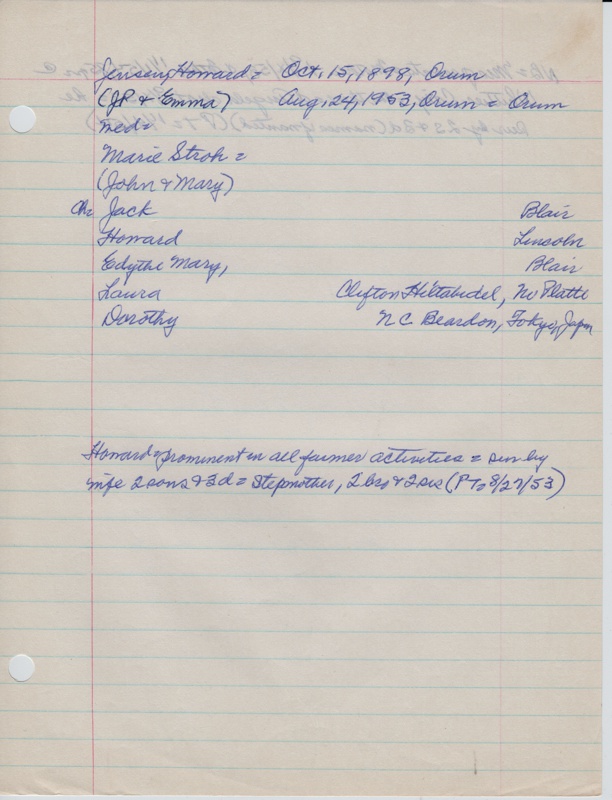 Jensen, Howard = Oct. 15, 1898, Orum
(JP & Emma) Aug. 24, 1953, Orum = Orum
med =
Marie Stroh =
(John & Mary)
Ch = Jack Blair
Howard Lincoln
Edythe Mary, Blair
Laura Clifton Hiltabidel, No Platte
Dorothy N C Beardon, Tokyo, Japn
Howard = prominent in all farmer activities = surv by
wife 2 sons & 3 d = Stepmother, 2 bro & 2 sis (P To 8/27/53)